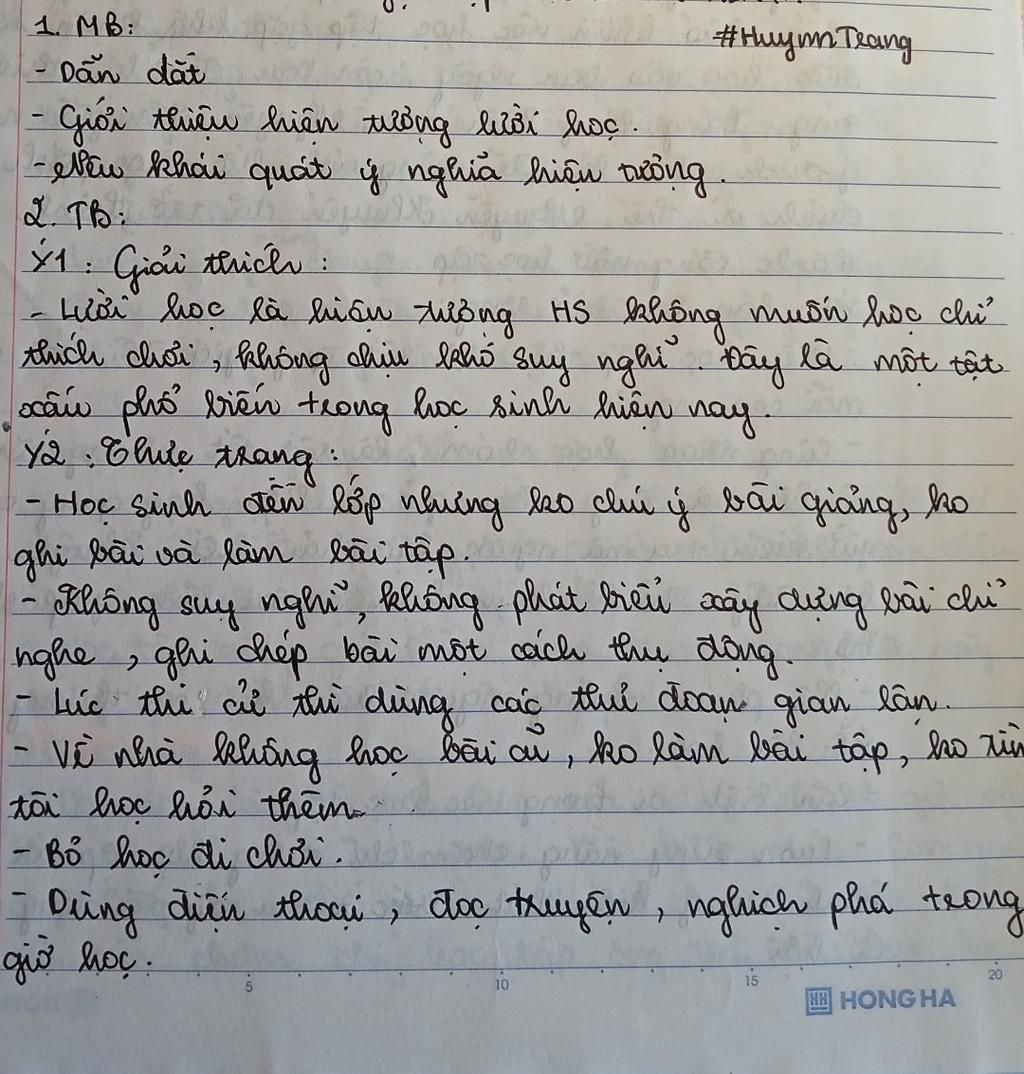 1. MB:
#HuynnTrang
- Dẫn dắt
- Giới thiệu hiện tượng lười học.
- Nêu khái quát ý nghĩa hiện tượng.
2. TB:
Ý1: Giải thích:
- Lười học là hiện tượng HS không muốn học chỉ
thích chơi, không chịu khó suy nghĩ. Đây là một tật
xấu phổ biến trong học sinh hiện nay.
Ý2: Thực trạng:
- Học sinh đến lớp nhưng ko chú ý bài giảng, ko
ghi bài và làm bài tập.
- Không suy nghĩ, không phát biểu xây dựng bài chỉ
nghe, ghi chép bài một cách thụ động.
- Lúc thi cử thì dùng các thủ đoạn gian lận.
- Về nhà không học bài cũ, ko làm bài tập, ko tìm
tòi học hỏi thêm.
- Bỏ học đi chơi.
- Dùng điện thoại, đọc truyện, nghịch phá trong
giờ học.
5 10 15 20
HONG HA